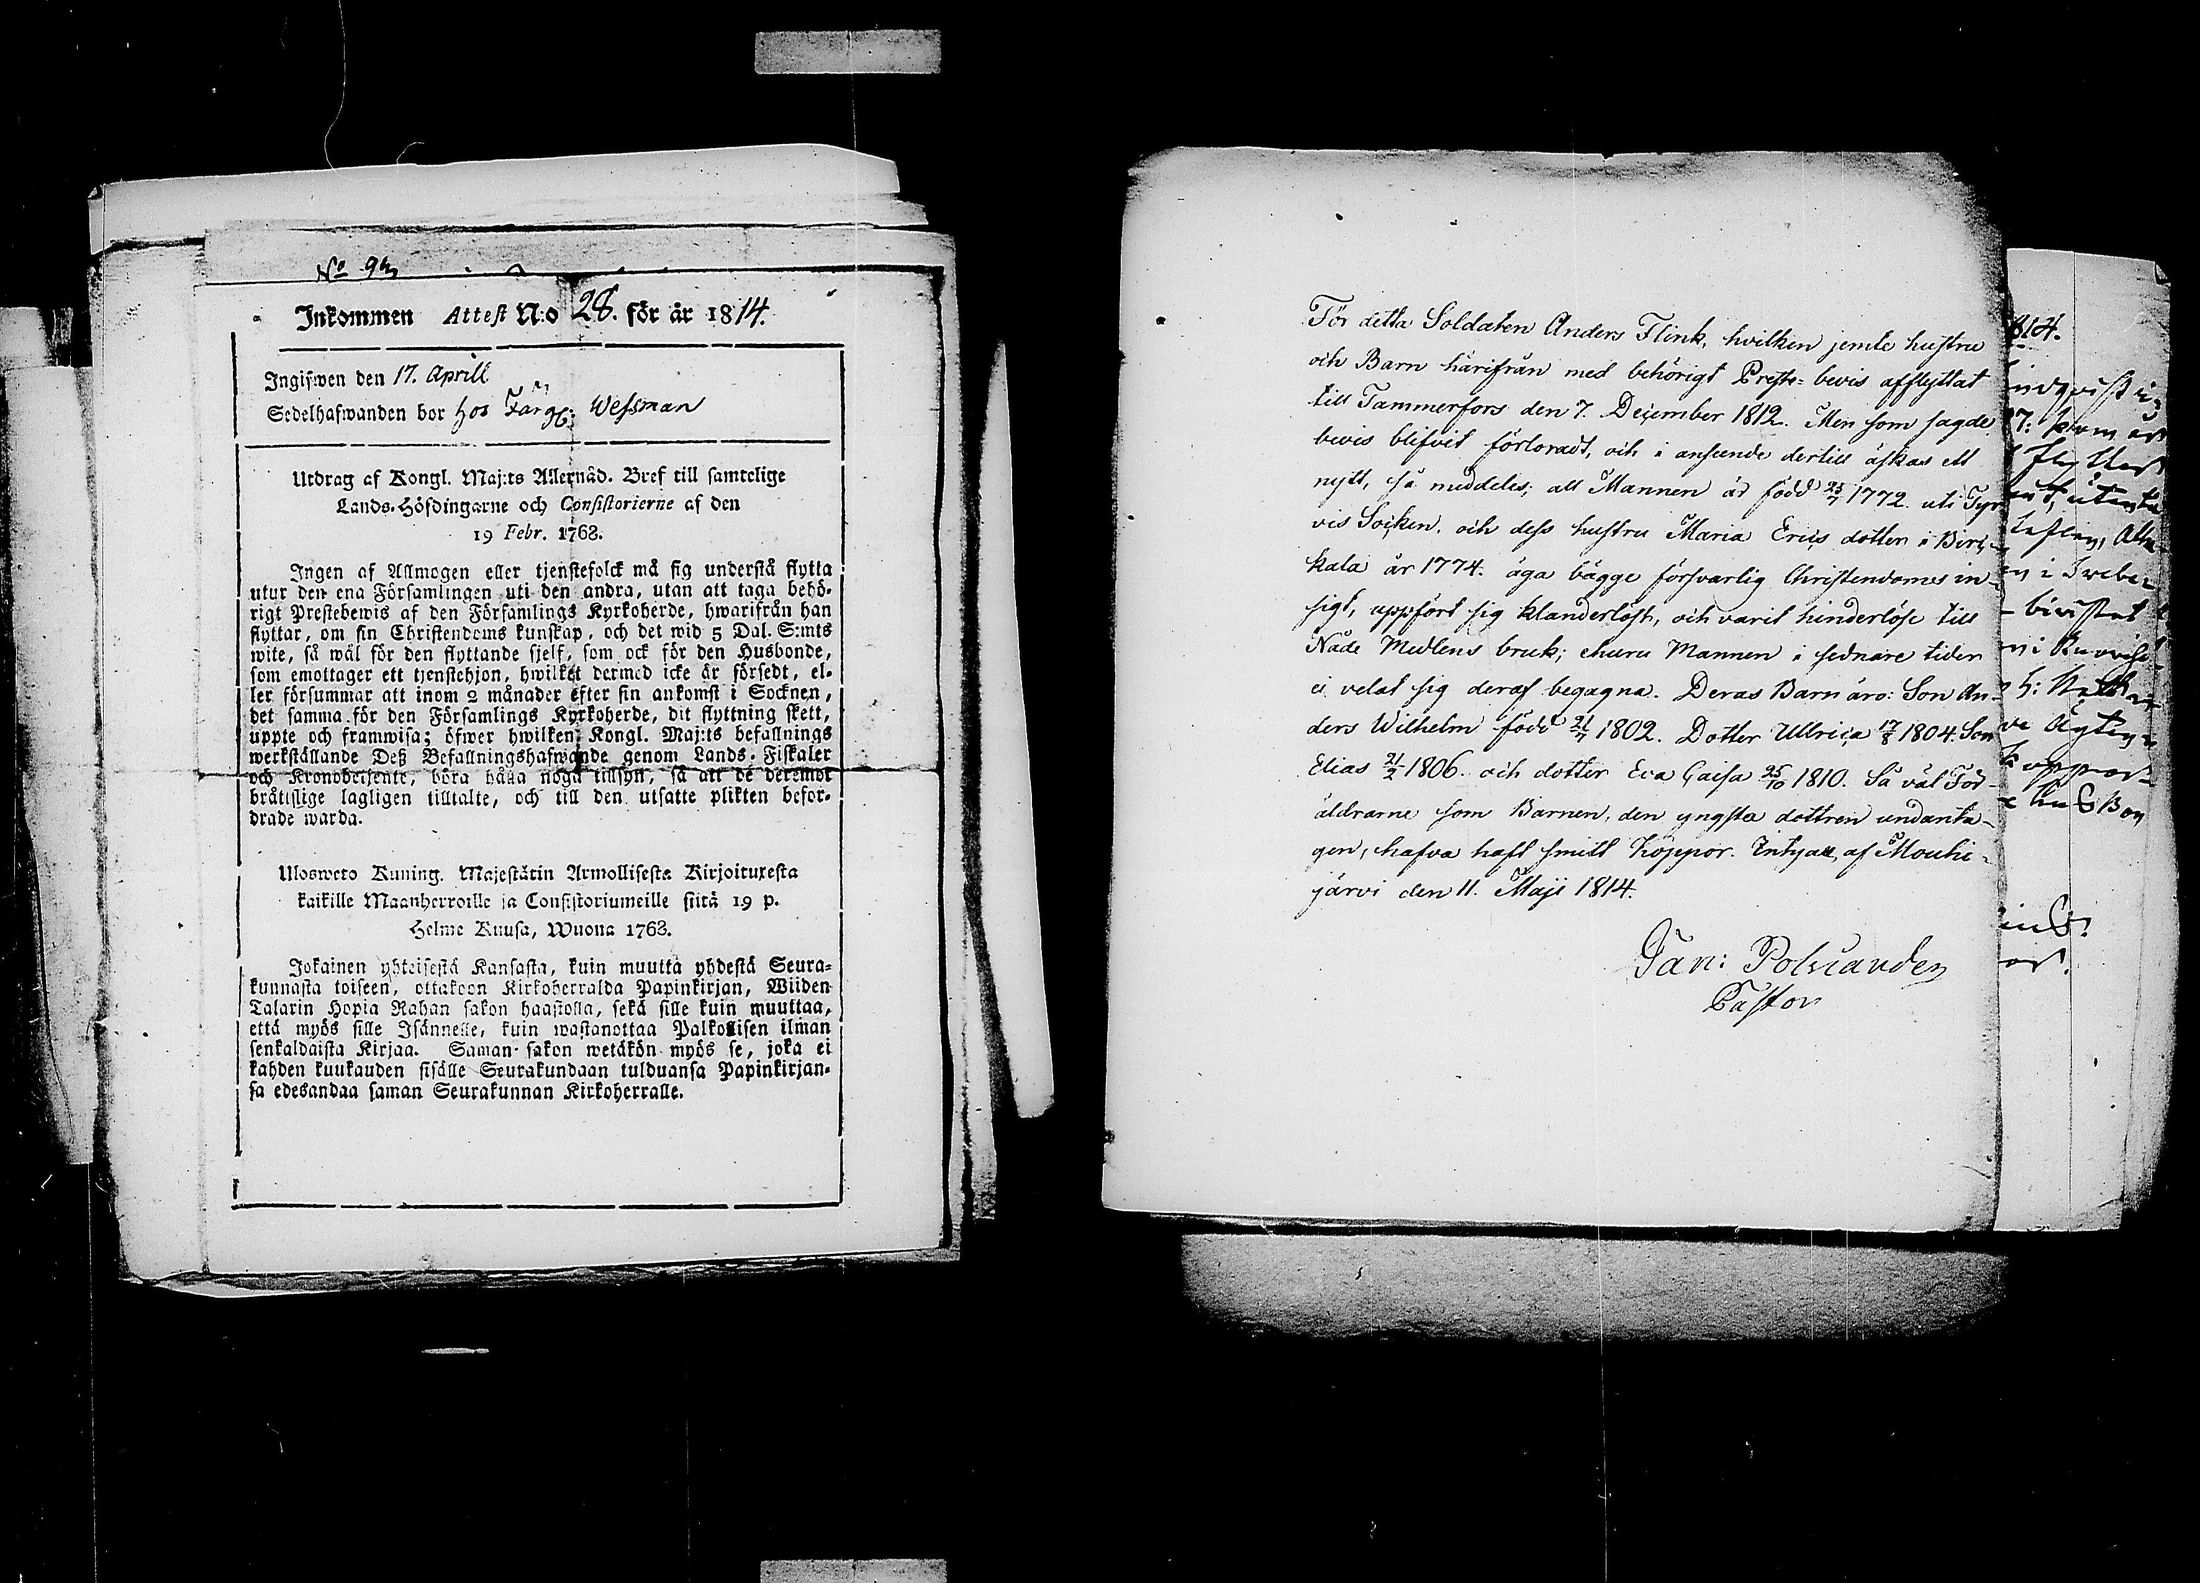 No 94
Inkommen Attest N:o 28. för år 1814.
Ingifwen den 17. Aprill
Sedelhafwanden bor hos Färg: Wessman
Utdrag af Kongl. Maj:ts Allernåd. Bref till samtelige
Lands-Höfdingarne och Consistorierne af den
19 Febr. 1763.
Ingen af Allmogen eller tjenstefolck må sig understå flytta
utur den ena Församlingen uti den andra, utan att taga behö-
rigt Prestebewis af den Församlings Kyrkoherde, hwarifrån han
flyttar, om sin Christendoms kunskap, och det wid 5 Dal. S:mts
wite, så wäl för den flyttande sjelf, som ock för den Husbonde,
som emottager ett tjenstehjon, hwilket dermed icke är försedt, el-
ler försummar att inom 2 månader efter sin ankomst i Socknen,
det samma för den Församlings Kyrkoherde, dit flyttning skett,
uppte och framwisa; öfwer hwilken Kongl. Maj:ts befallnings
werkställande Deß Befallningshafwande genom Lands-Fiskaler
och Kronobetjente, böra hålla noga tillsyn, så att de deremot
bråttslige lagligen tilltalte, och till den utsatte plikten befor-
drade warda.
Ulosweto Kuning. Majestätin Armollisesta Kirjoituxesta
kaikille Maanherroille ja Consistoriumeille siitä 19 p.
Helme Kuusa, Wuona 1763.
Jokainen yhteisestä Kansasta, kuin muutta yhdestä Seura-
kunnasta toiseen, ottakoon Kirkoherralda Papinkirjan, Wiiden
Talarin Hopia Rahan sakon haastolla, sekä sille kuin muuttaa,
että myös sille Isännelle, kuin wastanottaa Palkollisen ilman
senkaldaista Kirjaa. Saman sakon wetäkön myös se, joka ei
kahden kuukauden sisälle Seurakundaan tulduansa Papinkirjan-
sa edesandaa saman Seurakunnan Kirkoherralle.
För detta Soldaten Anders Flink, hvilken jemte hustru
och Barn härifrån med behörigt Preste-bevis afflyttat
till Tammerfors den 7. December 1812. Men som sagde
bevis blifvit förloradt, och i anseende dertill äskas ett
nytt, så meddeles, att Mannen är född 25/7 1772. uti Tyr
vis Socken, och dess hustru Maria Erics dotter i Birk-
kala år 1774. äga bägge försvarlig Christendoms in-
sigt, uppfört sig klanderlöst, och varit hinderlöse till
Nåde Medlens bruk; ehuru Mannen i sednare tider
ei velat sig deraf begagna. Deras Barn äro: Son An-
ders Wilhelm född 21/7 1802. Dotter Ullrica 17/8 1804. Son
Elias 21/2 1806. och dotter Eva Caisa 25/10 1810. Så väl För-
äldrarne som Barnen, den yngsta dottren undanta-
gen, hafva haft smitt koppor. Intygar, af Mouhi-
järvi den 11. Maji 1814.
Jan: Polviander
Pastor